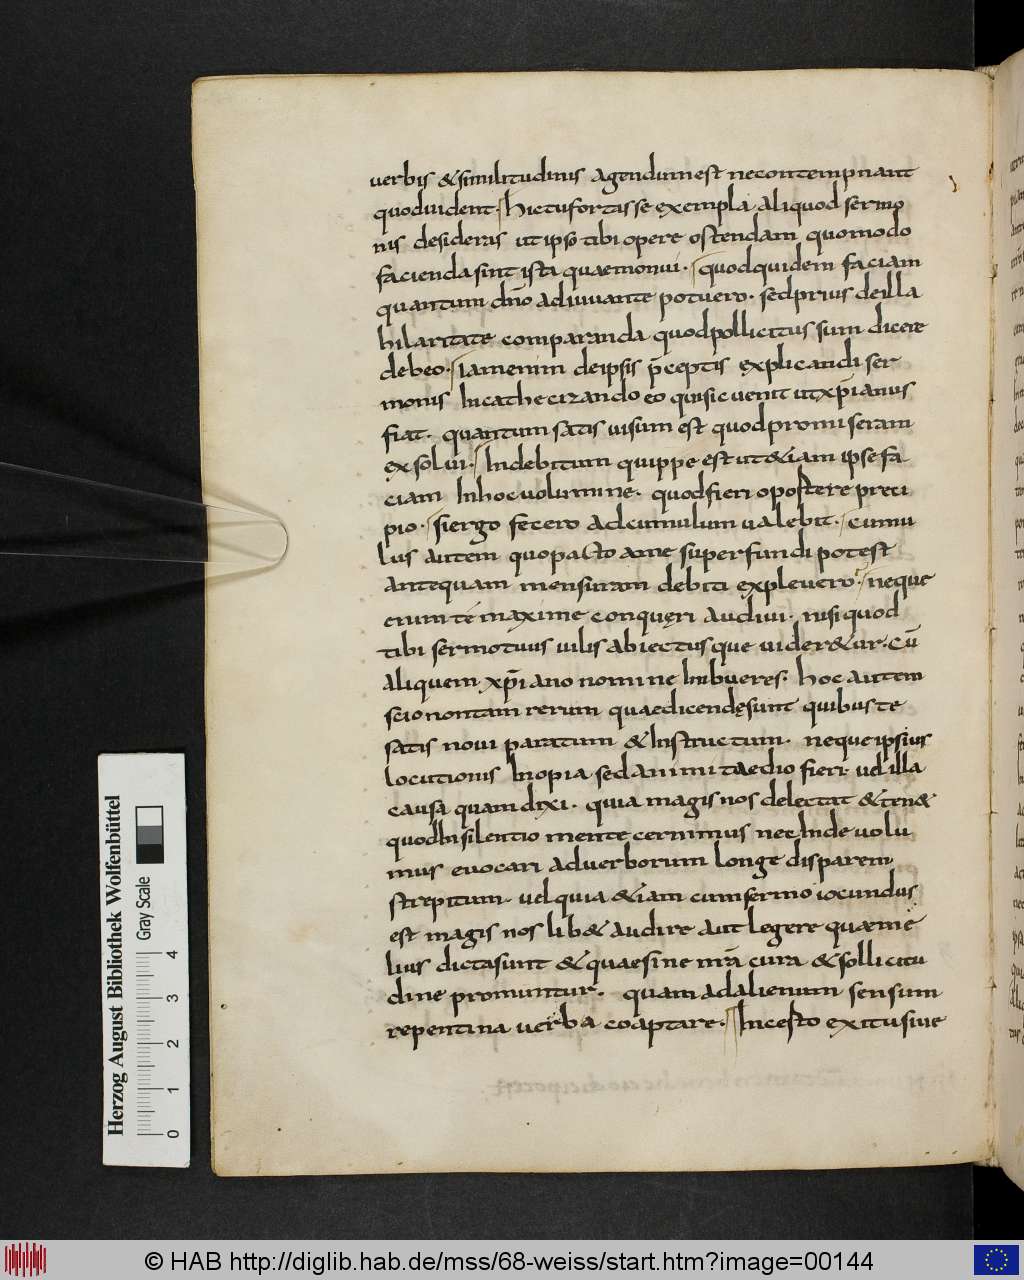 uerbis &similitudinis agendum est necontempnant
quoduident. hictufortisse exempla aliquod sermo
nis desideras ut ipso tibi opere ostendam quomodo
faciendasint ista quaemonui. quodquidem faciam
quantum dño adiuuante potuero. sedprius deilla
hilaritate comparanda quodpollicitus sum dicere
debeo. Iamenim deipsis p̄ceptis explicandi ser
monis Incathecizando eo quisic uenit utxp̄ianus
fiat. quantum satis uisum est quodpromiseram
exsolui. Indebitum quippe est ut&iam ipse fa
ciam Inhocuolumine. quodfieri oportere preci
pio. siergo fecero adcumulum ualebit. cumu
lus autem quopacto ame superfundi potest
antequam mensuram debiti expleuero. neque
enim te maxime conquęri audiui. nisi quod
tibi sermotuus uilis abiectusque uider&ur. Cū
aliquem xp̄iano nomine Inbueres. hoc autem
scio nontam rerum quaedicendęsunt quibus te
satis noui paratum & Instructum. neque ipsius
locutionis Inopia sed animi taedio fieri. uel illa
causa quam dixi. quia magis nos delectat &ten&
quodInsilentio mente cernimus nec Inde uolu
mus euocari aduerborum longe disparem
strepitum. uel quia &iam cum sermo iocundus
est magis nos lib& audire aut legere quaeme
lius dictasunt & quaesine nr̄a cura & sollicitu
dine promuntur. quam adalienum sensum
repentina uerba coaptare. Incesto exitusiue
Herzog August Bibliothek Wolfenbüttel
Gray Scale
0 1 2 3 4
© HAB http://diglib.hab.de/mss/68-weiss/start.htm?image=00144